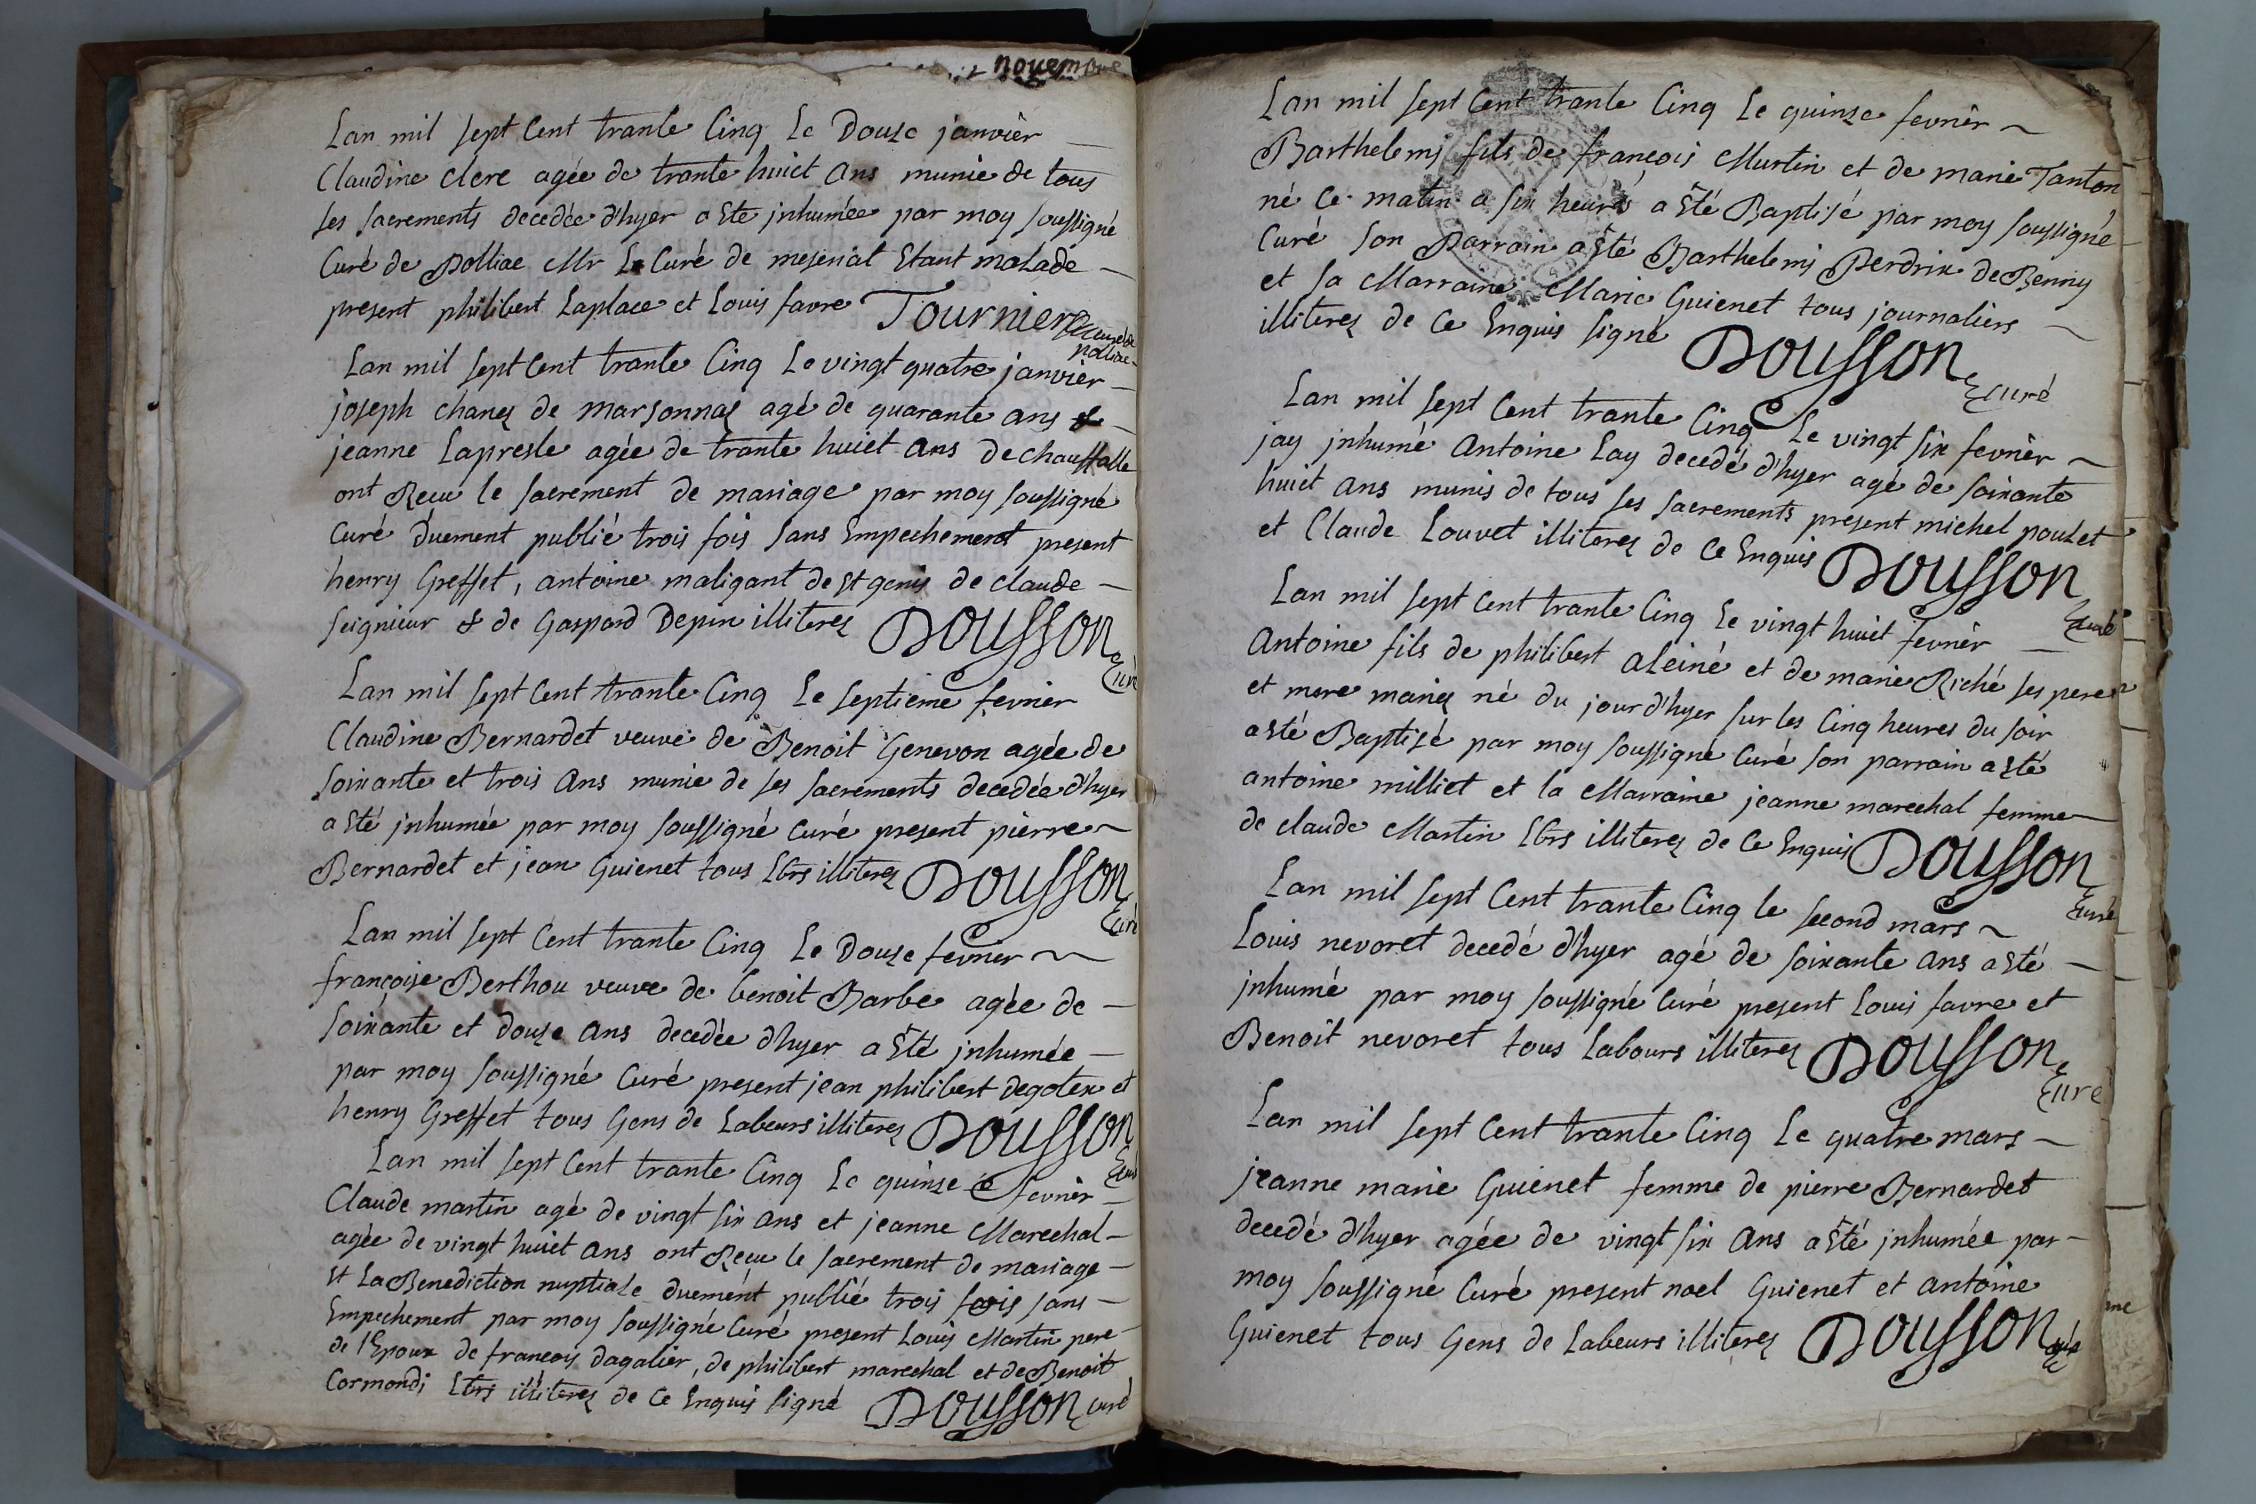 novembre
Lan mil sept Cent trante Cinq Le Douze janvier
Claudine clerc agée de trante huict Ans munie de tous
ses sacrements decedée d'hyer a Eté jnhumée par moy soussigné
Curé de Polliac Mr Le Curé de meserial Etant malade
present philibert Laplace et Louis favre Tournier Curé de
polliac
Lan mil sept Cent trante Cinq Le vingt quatre janvier
joseph chanez de marsonnaz agé de quarante ans &
jeanne Lapresle agée de trante huict ans de chauffalle
ont Recu le sacrement de mariage par moy soussigné
Curé duement publié trois fois sans Empechement present
henry Greffet, antoine maligant de st genis de claude
seignieur & de Gaspard Depin illiterez Dousson
Curé
Lan mil sept Cent trante Cinq Le septieme fevrier
Claudine Bernardet veuve de Benoit Genevon agée de
soixante et trois Ans munie de ses sacrements decedée d'hyer
a Eté jnhumée par moy soussigné Curé present pierre
Bernardet et jean Guienet tous Lbrs illiterez Dousson
Curé
Lan mil sept Cent trante Cinq Le Douze fevrier
françoise Berthou veuve de benoit Barbe agée de
soixante et douze ans decedée d'hyer a Eté jnhumée
par moy soussigné Curé present jean philibert degolex et
henry Greffet tous Gens de Labeurs illiterez Dousson
Curé
Lan mil sept Cent trante Cinq Le quinze fevrier
Claude martin agé de vingt six ans et jeanne Marechal
agée de vingt huict ans ont Recu le sacrement de mariage
Et La Benediction nuptiale duement publié trois fois sans
Empechement par moy soussigné Curé present Louis Martin pere
de l'Epoux de francois dagalier, de philibert marechal et de Benoit
Cormondi Lbrs illiterez de Ce Enquis signé Dousson curé
Lan mil sept Cent trante Cinq Le quinze fevrier
Barthelemj fils de françois Murtin et de marie Tanton
né Ce matin a six heures a Eté Baptisé par moy soussigné
Curé son Parrain a Eté Barthelemj Perdrix de Benny
et sa Marraine Marie Guienet tous journaliers
illiterez de Ce Enquis signé Dousson
Curé
Lan mil sept Cent trante Cinq Le vingt six fevrier
jay jnhumé Antoine Lay decedé d'hyer agé de soixante
huict ans munis de tous ses sacrements present michel poulet
et Claude Louvet illiterez de Ce Enquis Dousson
Curé
Lan mil sept Cent trante Cinq Le vingt huict fevrier
Antoine fils de philibert aleiné et de marie Riché ses pere
et mere mariez né du jour d'hyer sur les Cinq heures du soir
a Eté Baptisé par moy soussigné Curé son parrain a Eté
antoine milliet et la Marraine jeanne marechal femme
de claude Martin Lbrs illiterez de Ce Enquis Dousson
Curé
Lan mil sept Cent trante Cinq le second mars
Louis nevoret decedé d'hyer agé de soixante Ans a Eté
jnhumé par moy soussigné Curé present Louis favre et
Benoit nevoret tous Labours illiterez Dousson
Curé
Lan mil sept Cent trante Cinq Le quatre mars
jeanne marie Guienet femme de pierre Bernardet
decedé d'hyer agée de vingt six Ans a Eté jnhumée par
moy soussigné Curé present noel Guienet et antoine
Guienet tous Gens de Labeurs illiterez Dousson curé